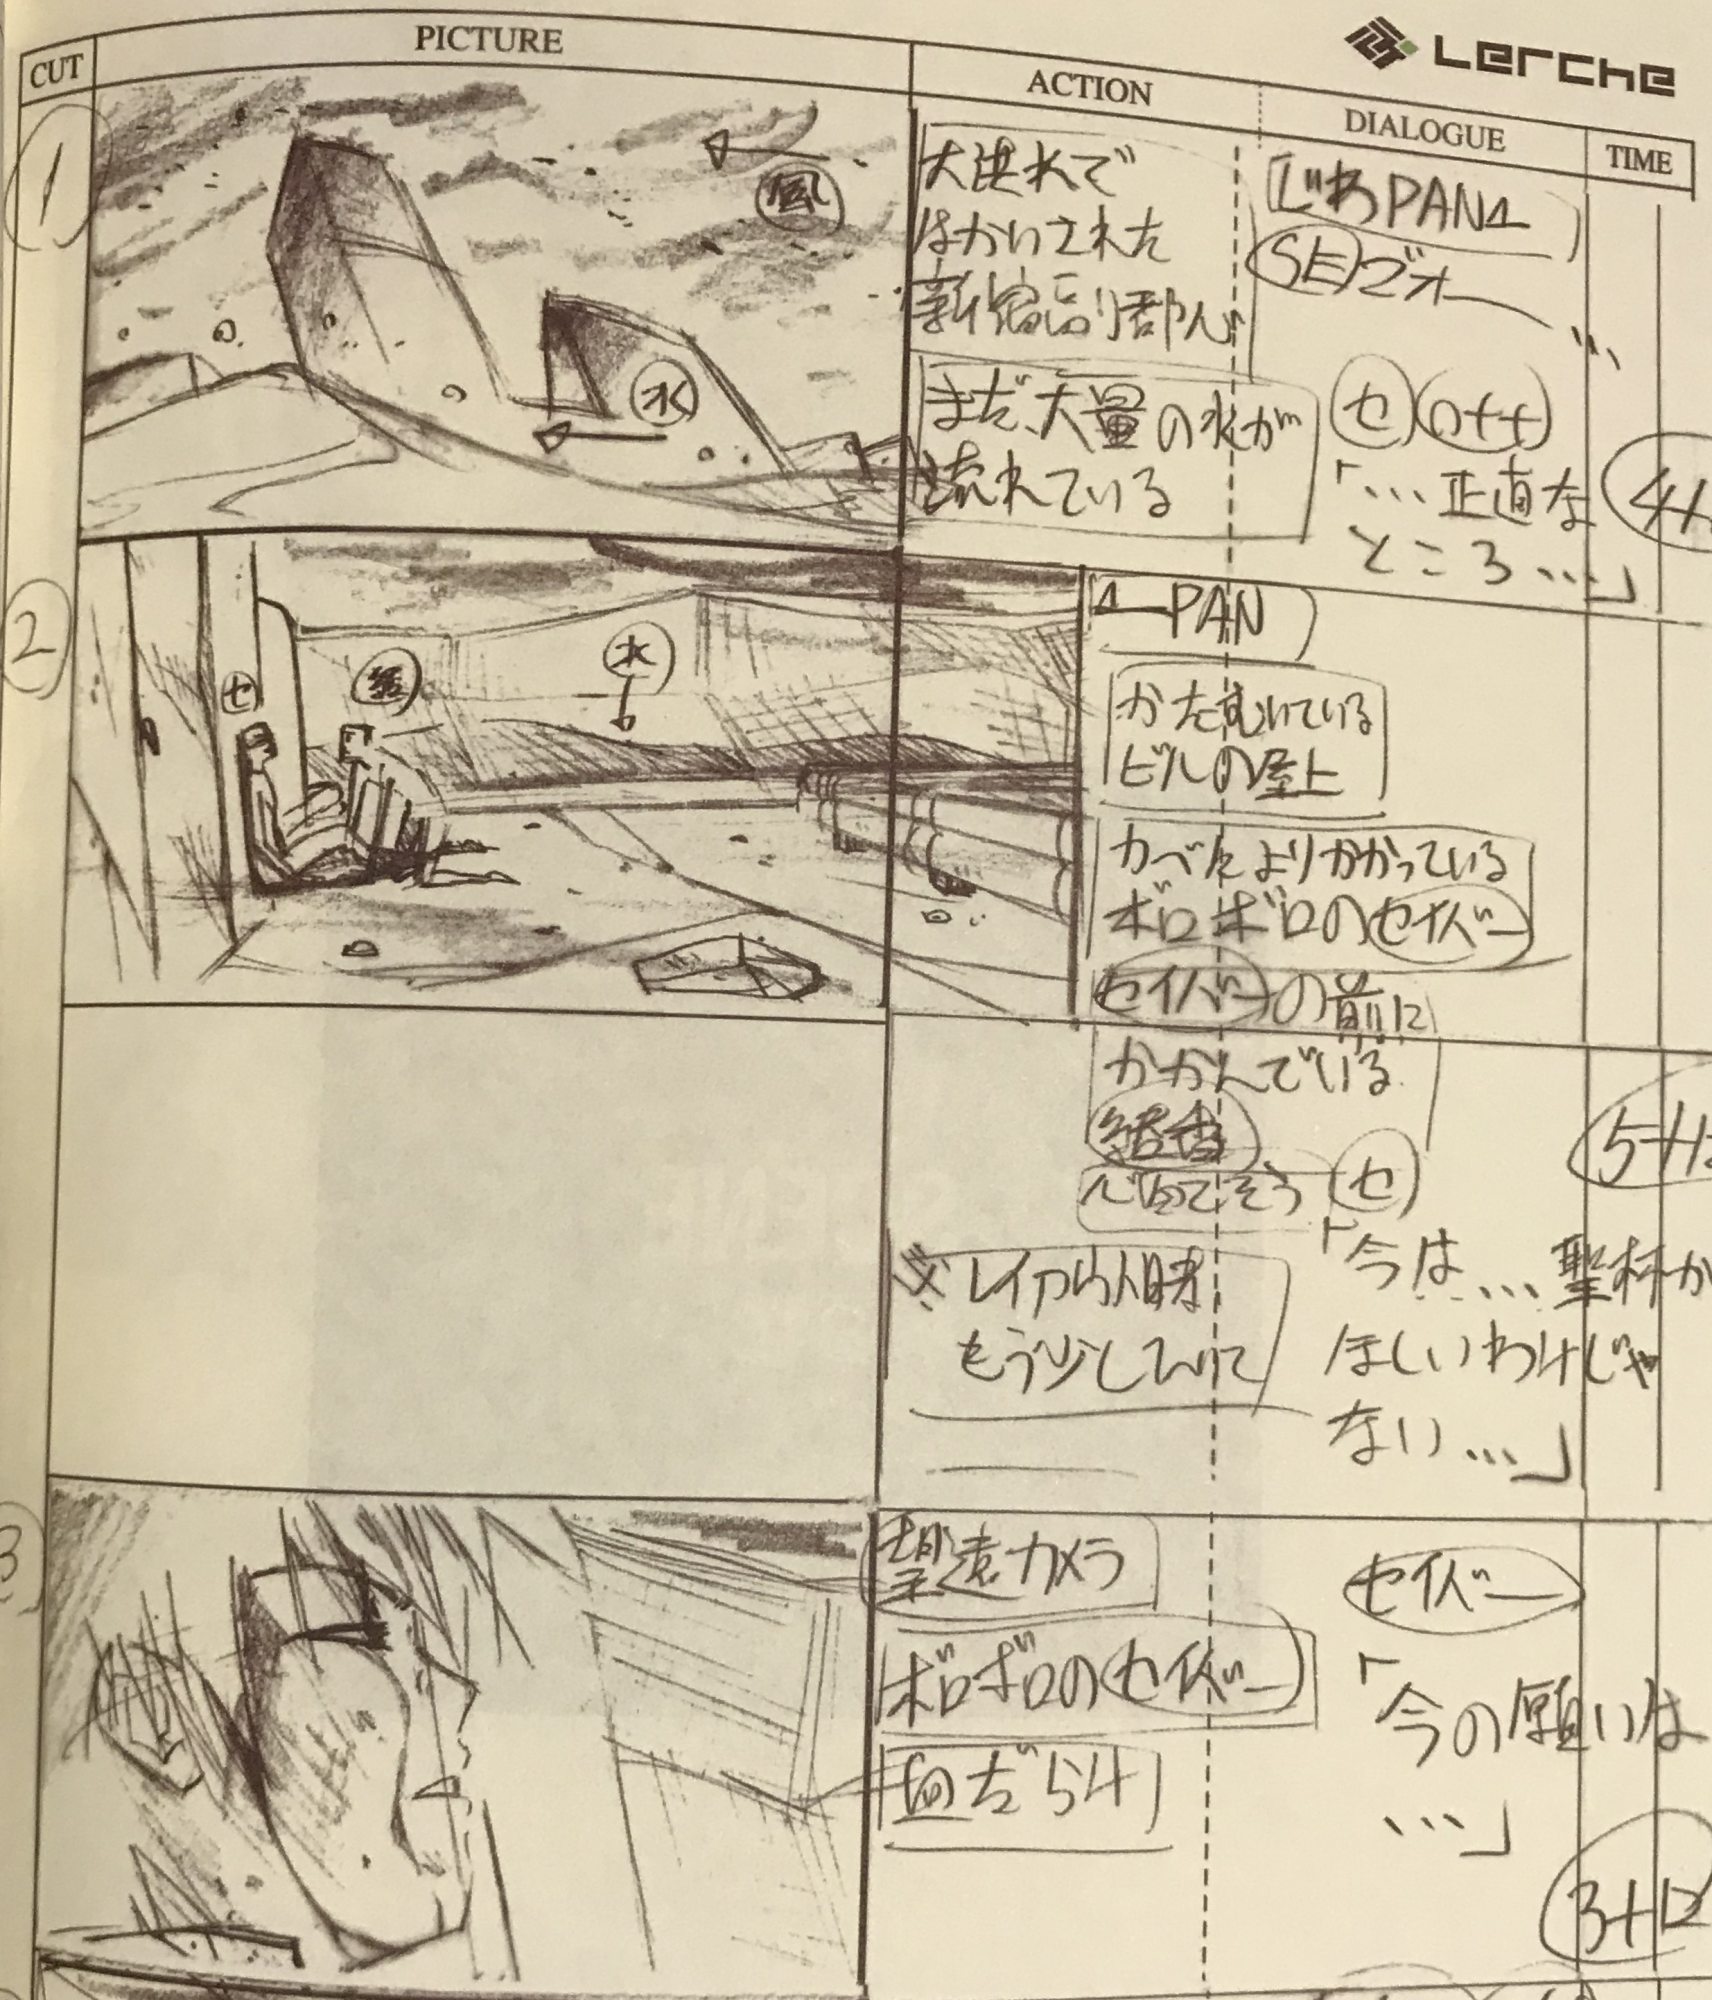 Lerche
CUT
PICTURE
ACTION
DIALOGUE
TIME
1
風
水
大洪水で
はかいされた
新宿
まだ、大量の水が
流れている
じわPAN
SE ゴオー
…
セ off
「…正直な
ところ…」
2
セ
結
水
PAN
かたむいている
ビルの屋上
かべによりかかっている
ボロボロのセイバー
セイバーの前に
かがんでいる
結香
心配そう
セ
「今は…聖杯が
ほしいわけじゃ
ない…」
※
もう少し
3
望遠カメラ
ボロボロのセイバー
血だらけ
セイバー
「今の願いは
…」
3+12